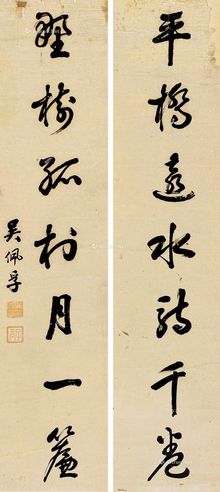 平橋遠水詩千卷
野樹孤村月一簾
吳佩孚